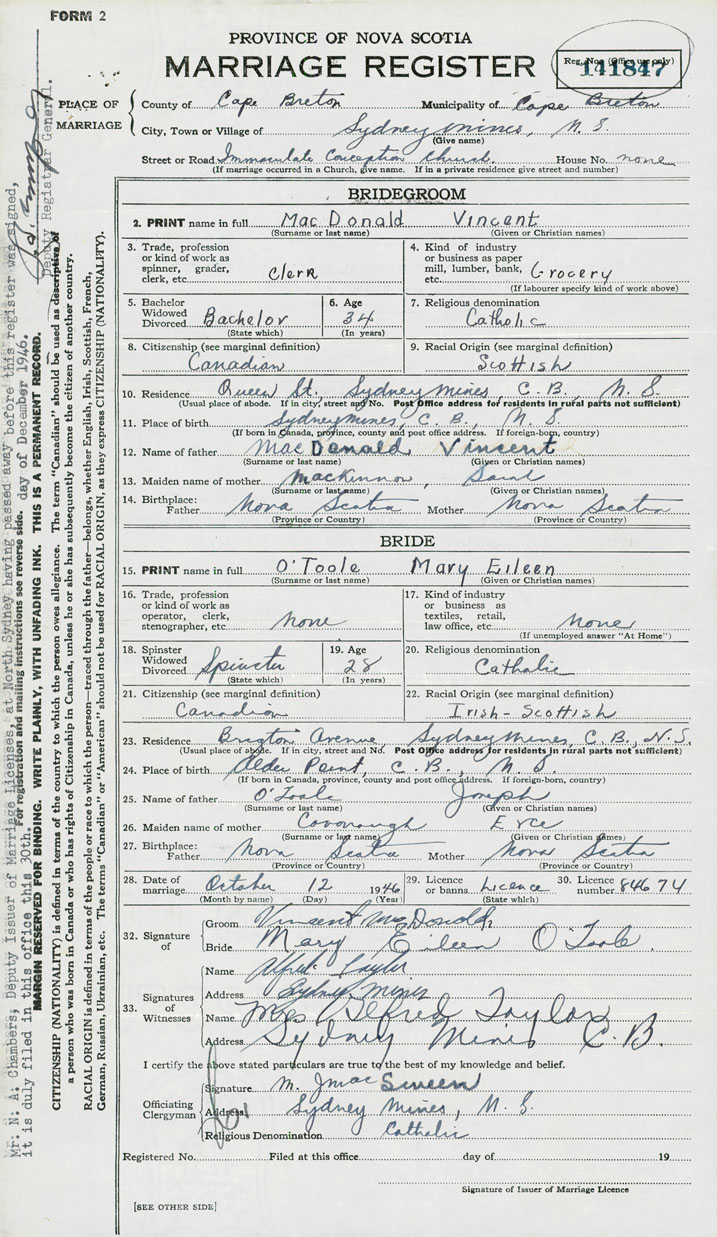 FORM 2
PROVINCE OF NOVA SCOTIA
MARRIAGE REGISTER
Reg. No. (Office use only)
141847
PLACE OF MARRIAGE
County of Cape Breton Municipality of Cape Breton
City, Town or Village of Sydney Mines, N. S.
(Give name)
Street or Road Immaculate Conception Church. House No. none
(If marriage occurred in a Church, give name. If in a private residence give street and number)
BRIDEGROOM
2. PRINT name in full MacDonald Vincent
(Surname or last name) (Given or Christian names)
3. Trade, profession or kind of work as spinner, grader, clerk, etc. Clerk
4. Kind of industry or business as paper mill, lumber, bank, etc. Grocery
(If labourer specify kind of work above)
5. Bachelor Widowed Divorced Bachelor
(State which)
6. Age 34
(In years)
7. Religious denomination
Catholic
8. Citizenship (see marginal definition)
Canadian
9. Racial Origin (see marginal definition)
Scottish
10. Residence Queen St., Sydney Mines, C. B., N. S.
(Usual place of abode. If in city, street and No. Post Office address for residents in rural parts not sufficient)
11. Place of birth Sydney Mines, C. B., N. S.
(If born in Canada, province, county and post office address. If foreign-born, country)
12. Name of father MacDonald Vincent
(Surname or last name) (Given or Christian names)
13. Maiden name of mother MacKinnon, Sarah
(Surname or last name) (Given or Christian names)
14. Birthplace: Father Nova Scotia Mother Nova Scotia
(Province or Country) (Province or Country)
BRIDE
15. PRINT name in full O'Toole Mary Eileen
(Surname or last name) (Given or Christian names)
16. Trade, profession or kind of work as operator, clerk, stenographer, etc. none
17. Kind of industry or business as textiles, retail, law office, etc. none
(If unemployed answer "At Home")
18. Spinster Widowed Divorced Spinster
(State which)
19. Age 28
(In years)
20. Religious denomination
Catholic
21. Citizenship (see marginal definition)
Canadian
22. Racial Origin (see marginal definition)
Irish-Scottish
23. Residence Brigton Avenue, Sydney Mines, C. B., N. S.
(Usual place of abode. If in city, street and No. Post Office address for residents in rural parts not sufficient)
24. Place of birth Alder Point, C. B., N. S.
(If born in Canada, province, county and post office address. If foreign-born, country)
25. Name of father O'Toole Joseph
(Surname or last name) (Given or Christian names)
26. Maiden name of mother Cavanaugh
(Surname or last name) (Given or Christian names)
27. Birthplace: Father Nova Scotia Mother Nova Scotia
(Province or Country) (Province or Country)
28. Date of marriage October 12 1946
(Month by name) (Day) (Year)
29. Licence or banns Licence
(State which)
30. Licence number 84674
32. Signature of
Groom Vincent McDonald
Bride Mary Eileen O'Toole.
33. Signatures of Witnesses
Name Alfred Taylor
Address Sydney Mines
Name Mrs Alfred Taylor
Address Sydney Mines C. B.
I certify the above stated particulars are true to the best of my knowledge and belief.
Officiating Clergyman
Signature M. J. Mac Sween
Address Sydney Mines, N. S.
Religious Denomination Catholic
Registered No. Filed at this office day of 19
Signature of Issuer of Marriage Licence
[SEE OTHER SIDE]
Mr. N. A. Chambers, Deputy Issuer of Marriage Licenses, at North Sydney having passed away before this register was signed,
it is duly filed in this office this 30th. day of December 1946.
Deputy Registrar General.
For registration and mailing instructions see reverse side.
MARGIN RESERVED FOR BINDING. WRITE PLAINLY, WITH UNFADING INK. THIS IS A PERMANENT RECORD.
CITIZENSHIP (NATIONALITY) is defined in terms of the country to which the person owes allegiance. The term "Canadian" should be used as descriptive of
a person who was born in Canada or who has rights of Citizenship in Canada, unless he or she has subsequently become the citizen of another country.
RACIAL ORIGIN is defined in terms of the people or race to which the person—traced through the father—belongs, whether English, Irish, Scottish, French,
German, Russian, Ukrainian, etc. The terms "Canadian" or "American" should not be used for RACIAL ORIGIN, as they express CITIZENSHIP (NATIONALITY).